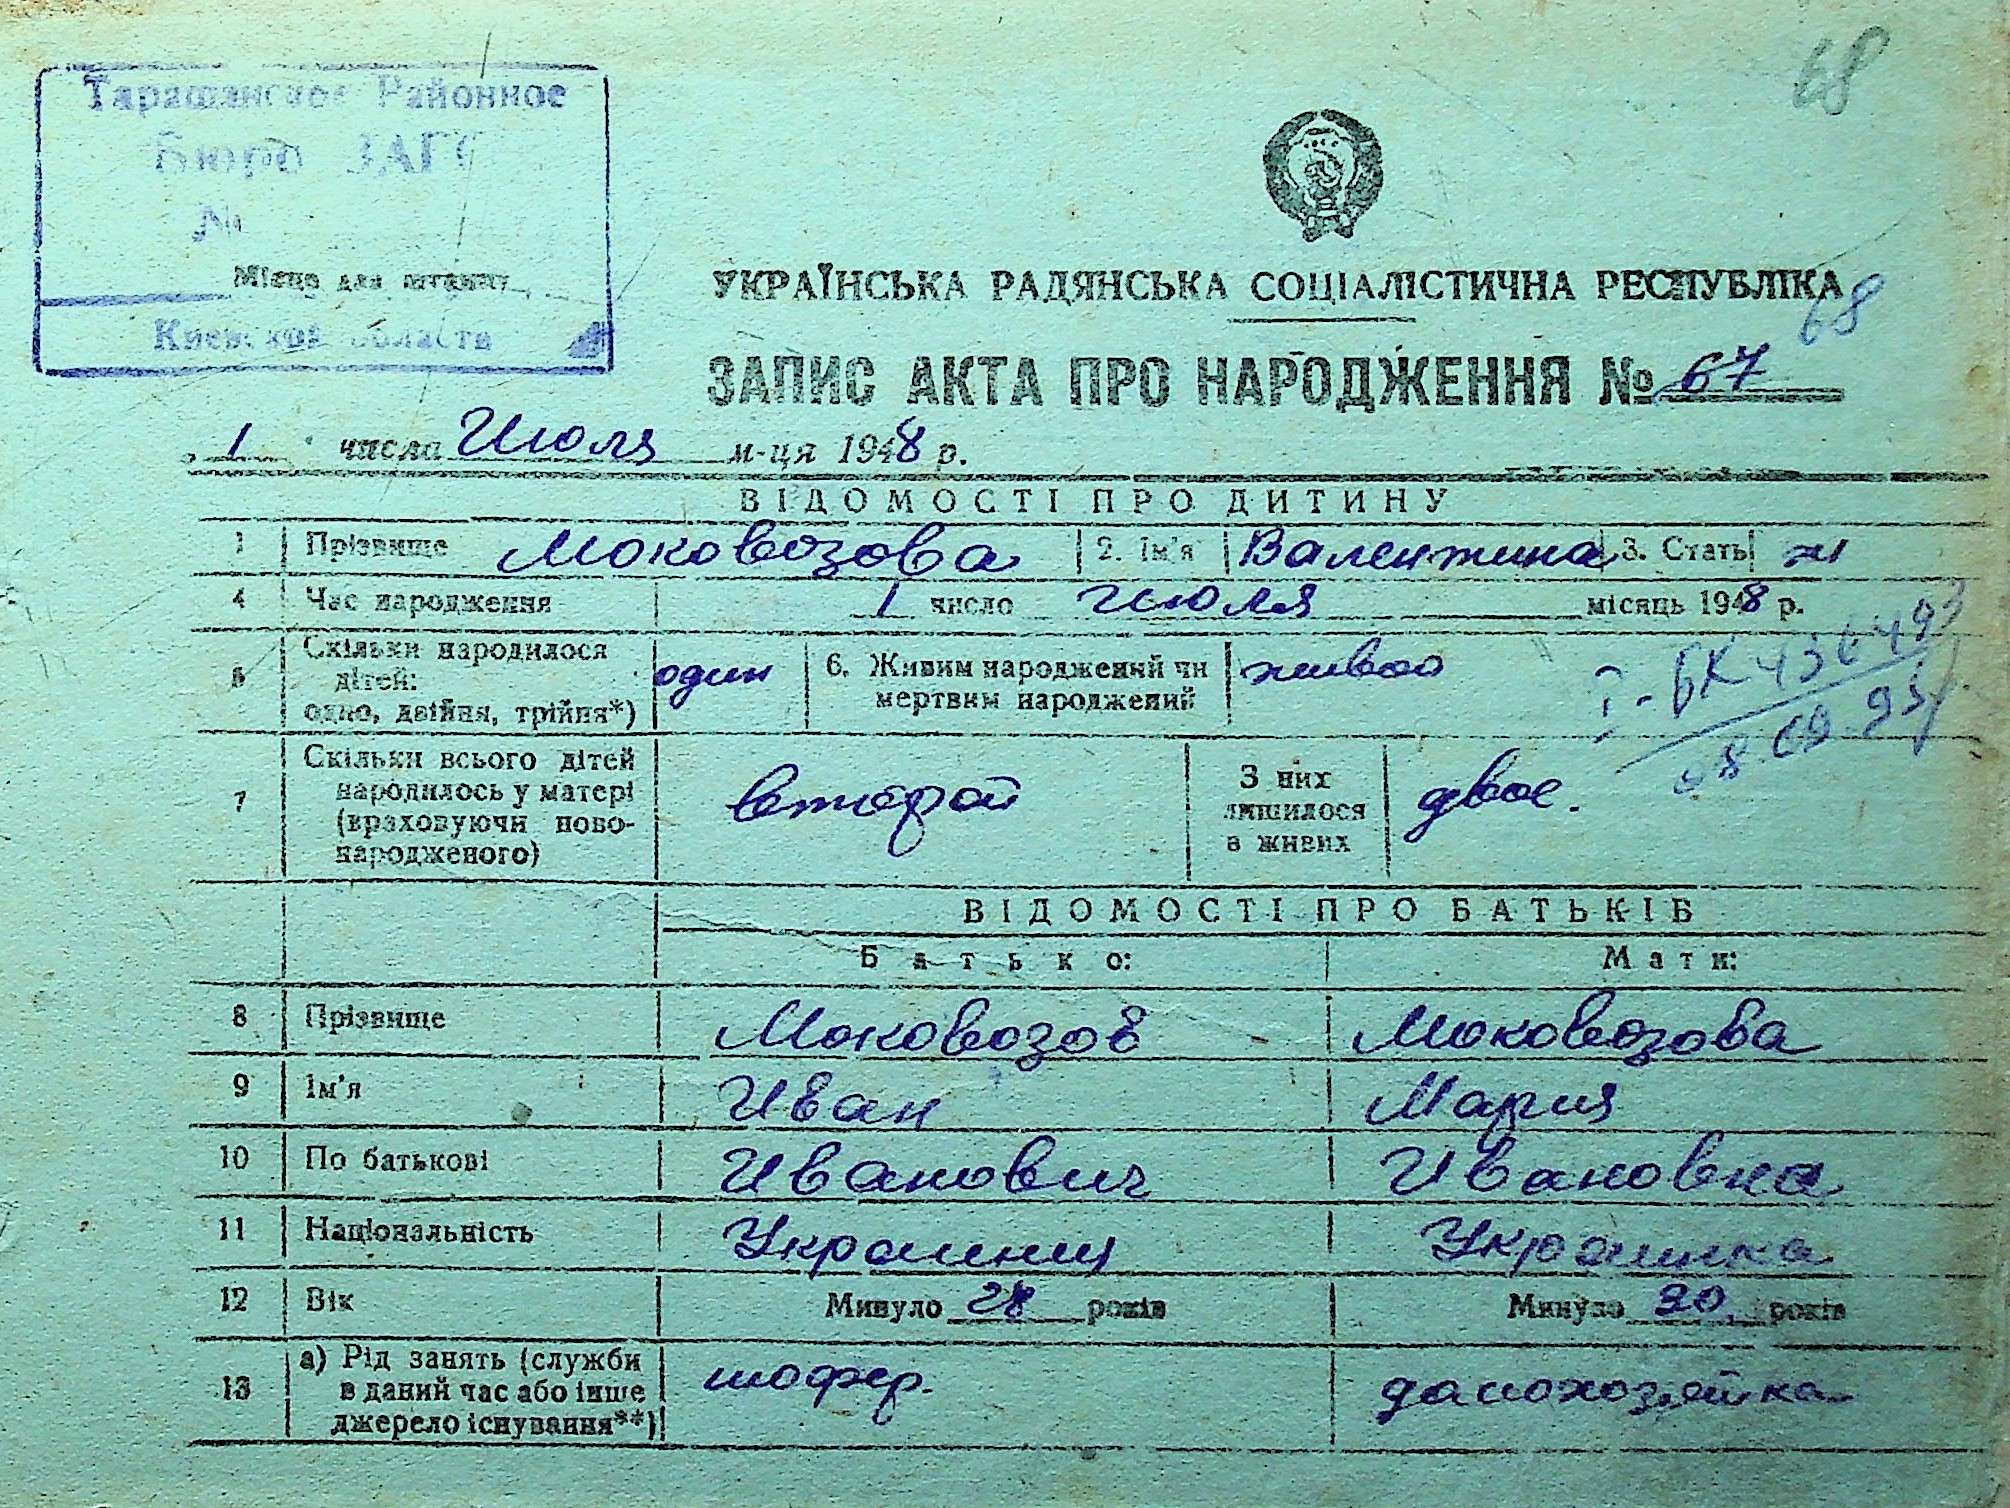 68
Таращанское Районное
Бюро ЗАГС
№
Місце для штампу
Киевской области
УКРАЇНСЬКА РАДЯНСЬКА СОЦІАЛІСТИЧНА РЕСПУБЛІКА
68
ЗАПИС АКТА ПРО НАРОДЖЕННЯ № 67
1 числа Июля м-ця 1948 р.
ВІДОМОСТІ ПРО ДИТИНУ
1 Прізвище Моковозова 2. Ім'я Валентина 3. Стать ж
4 Час народження 1 число Июля місяць 1948 р.
5 Скільки народилося дітей: одно, двійня, трійня*) один 6. Живим народжений чи мертвим народжений живою
I-БК 436493
08.09.93
7 Скільки всього дітей народилось у матері (враховуючи новонародженого) второй З них лишилося в живих двое.
ВІДОМОСТІ ПРО БАТЬКІВ
Батько: Мати:
8 Прізвище Моковозов Моковозова
9 Ім'я Иван Мария
10 По батькові Иванович Ивановна
11 Національність Украинец Украинка
12 Вік Минуло 28 років Минуло 20 років
13 а) Рід занять (служби в даний час або інше джерело існування**) шофер. домохозяйка